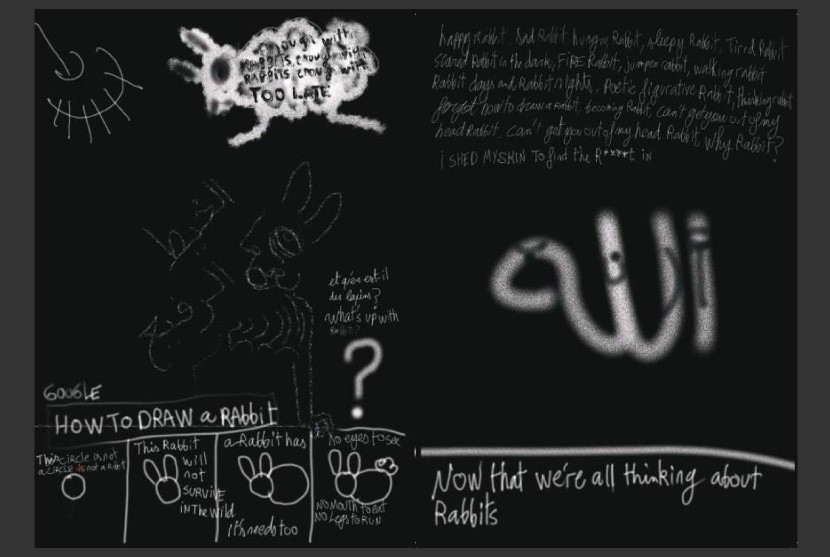 enough with
RABBITS, enough with
RABBITS, enough with
TOO LATE
et qu'en est il
des lapins?
what's up with
Rabbits?
?
GOOGLE
HOW TO DRAW a RABbiT
This circle is not
a circle is not a Rabbit
This Rabbit
will
not
SURVIVE
in The wild
a Rabbit has
it's needs too
no eyes to see
NO MOUTH to eat
NO Legs to RUN
happy rabbit. Sad Rabbit hungry Rabbit, sleepy Rabbit, Tired Rabbit
scared Rabbit in the dark, FIRE Rabbit, jumper rabbit, walking rabbit
Rabbit days and Rabbit nights. Poetic figurative Rabbit, thinking rabbit
forgot how to draw a rabbit, becoming Rabbit, can't get you out of my
head Rabbit, can't get you out of my head Rabbit, Why Rabbit?
i SHED MY SKIN To find the R****t in
الله
Now that we're all thinking about
Rabbits